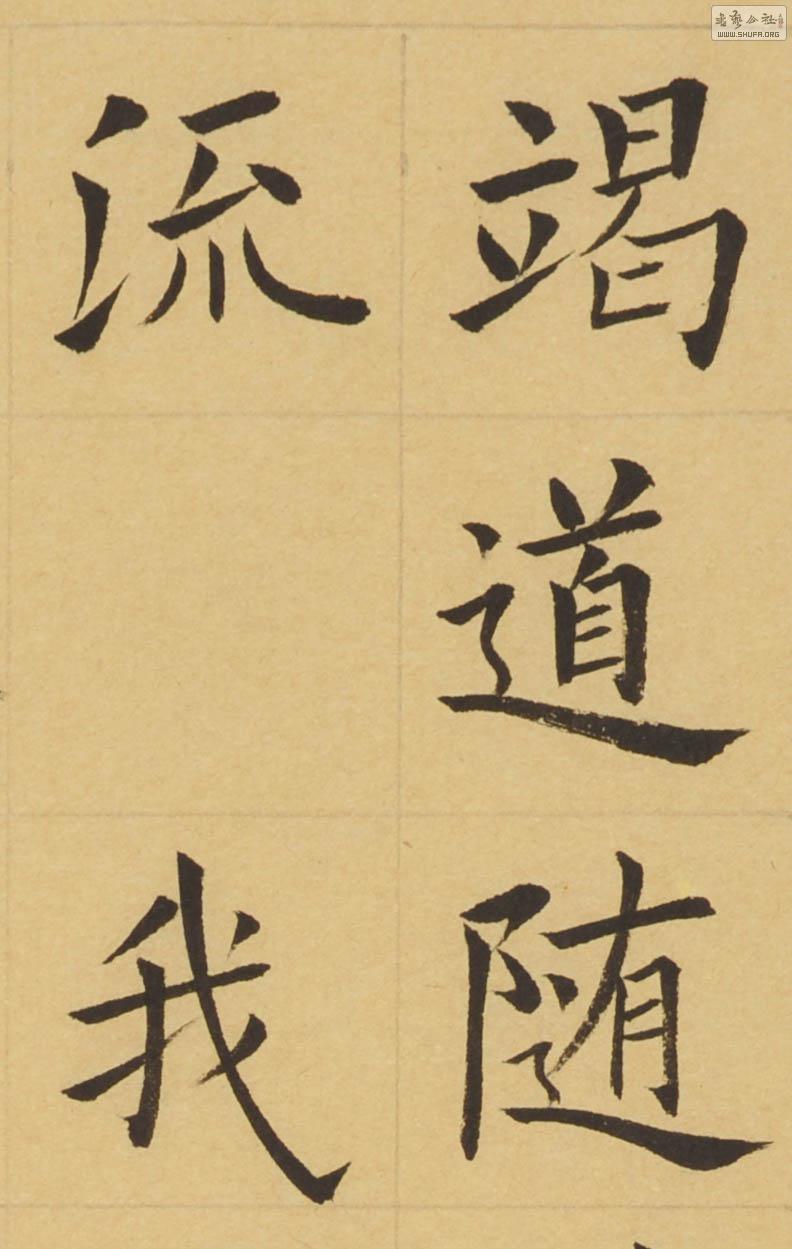 竭道随
流 我
书艺公社
WWW.SHUFA.ORG